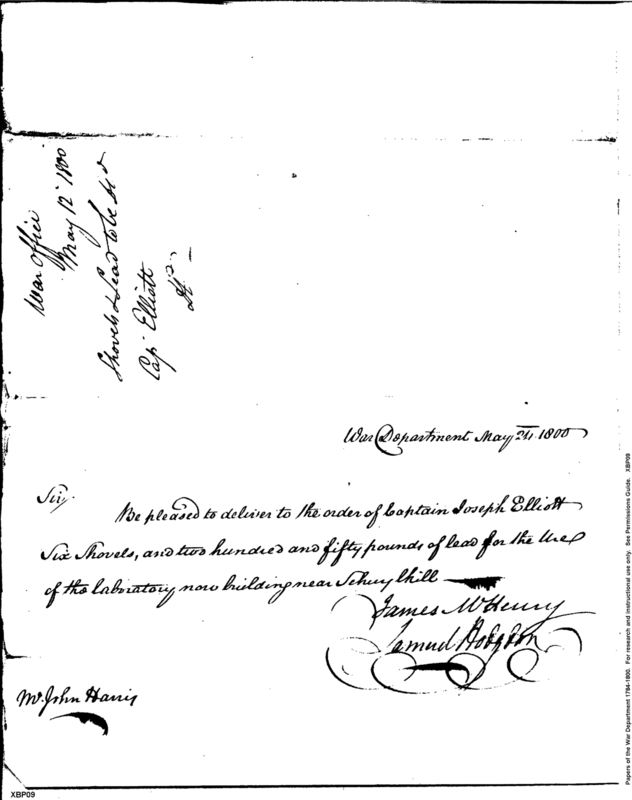 War Office
May 12 1800
Shovels & Lead to be d'd
Cap Elliott
War Department May 1800
Sir,
Be pleased to deliver to the order of Captain Joseph Elliott
Six Shovels, and two hundred and fifty pounds of lead for the Use
of the laboratory now building near Schuylkill
James McHenry
Samuel Hodgdon
Mr. John Harris
XBP09
Papers of the War Department 1784-1800. For research and instructional use only. See Permissions Guide. XBP09